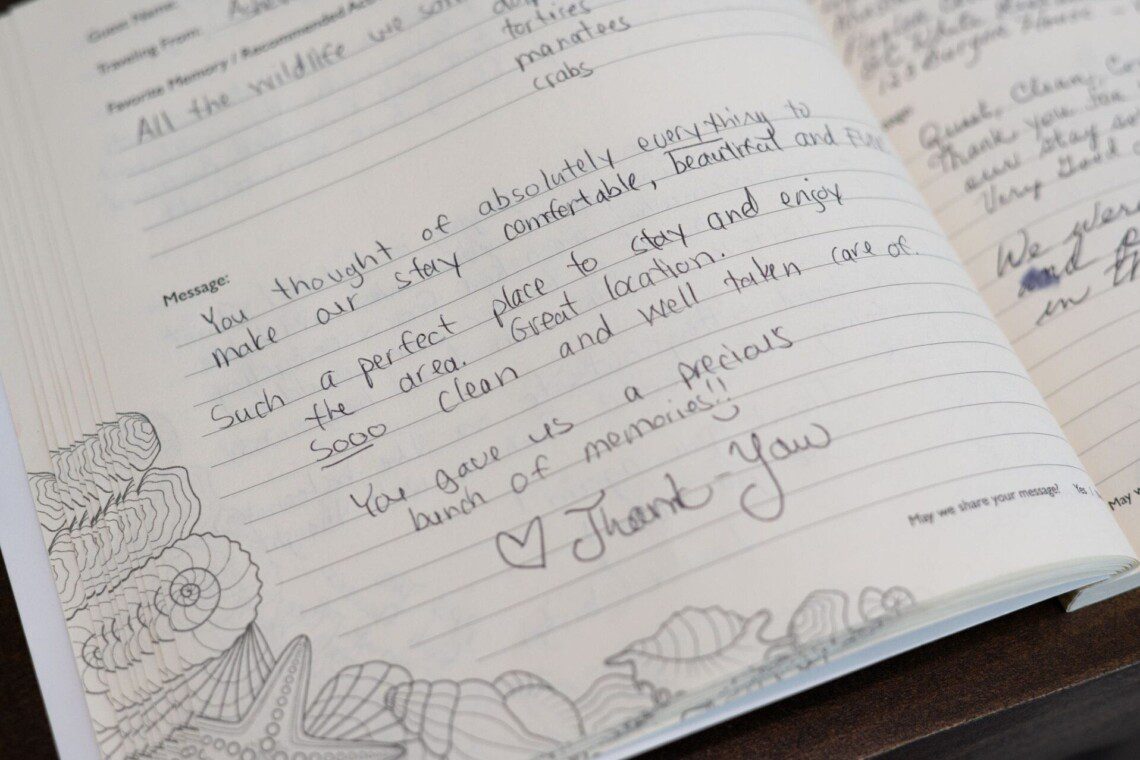 Guest Name:
Traveling From:
Favorite Memory / Recommended
All the wildlife we saw
tortises
manatees
crabs
Message:
You thought of absolutely everything to
make our stay comfertable, beautiful and FUN
Such a perfect place to stay and enjoy
the area. Great location.
Sooo clean and well taken care of.
You gave us a precious
bunch of memories!!
Thank-You
May we share your message? Yes
Quiet, Clean,
Thank you for
our stay
Very Good
We were
and
in
May